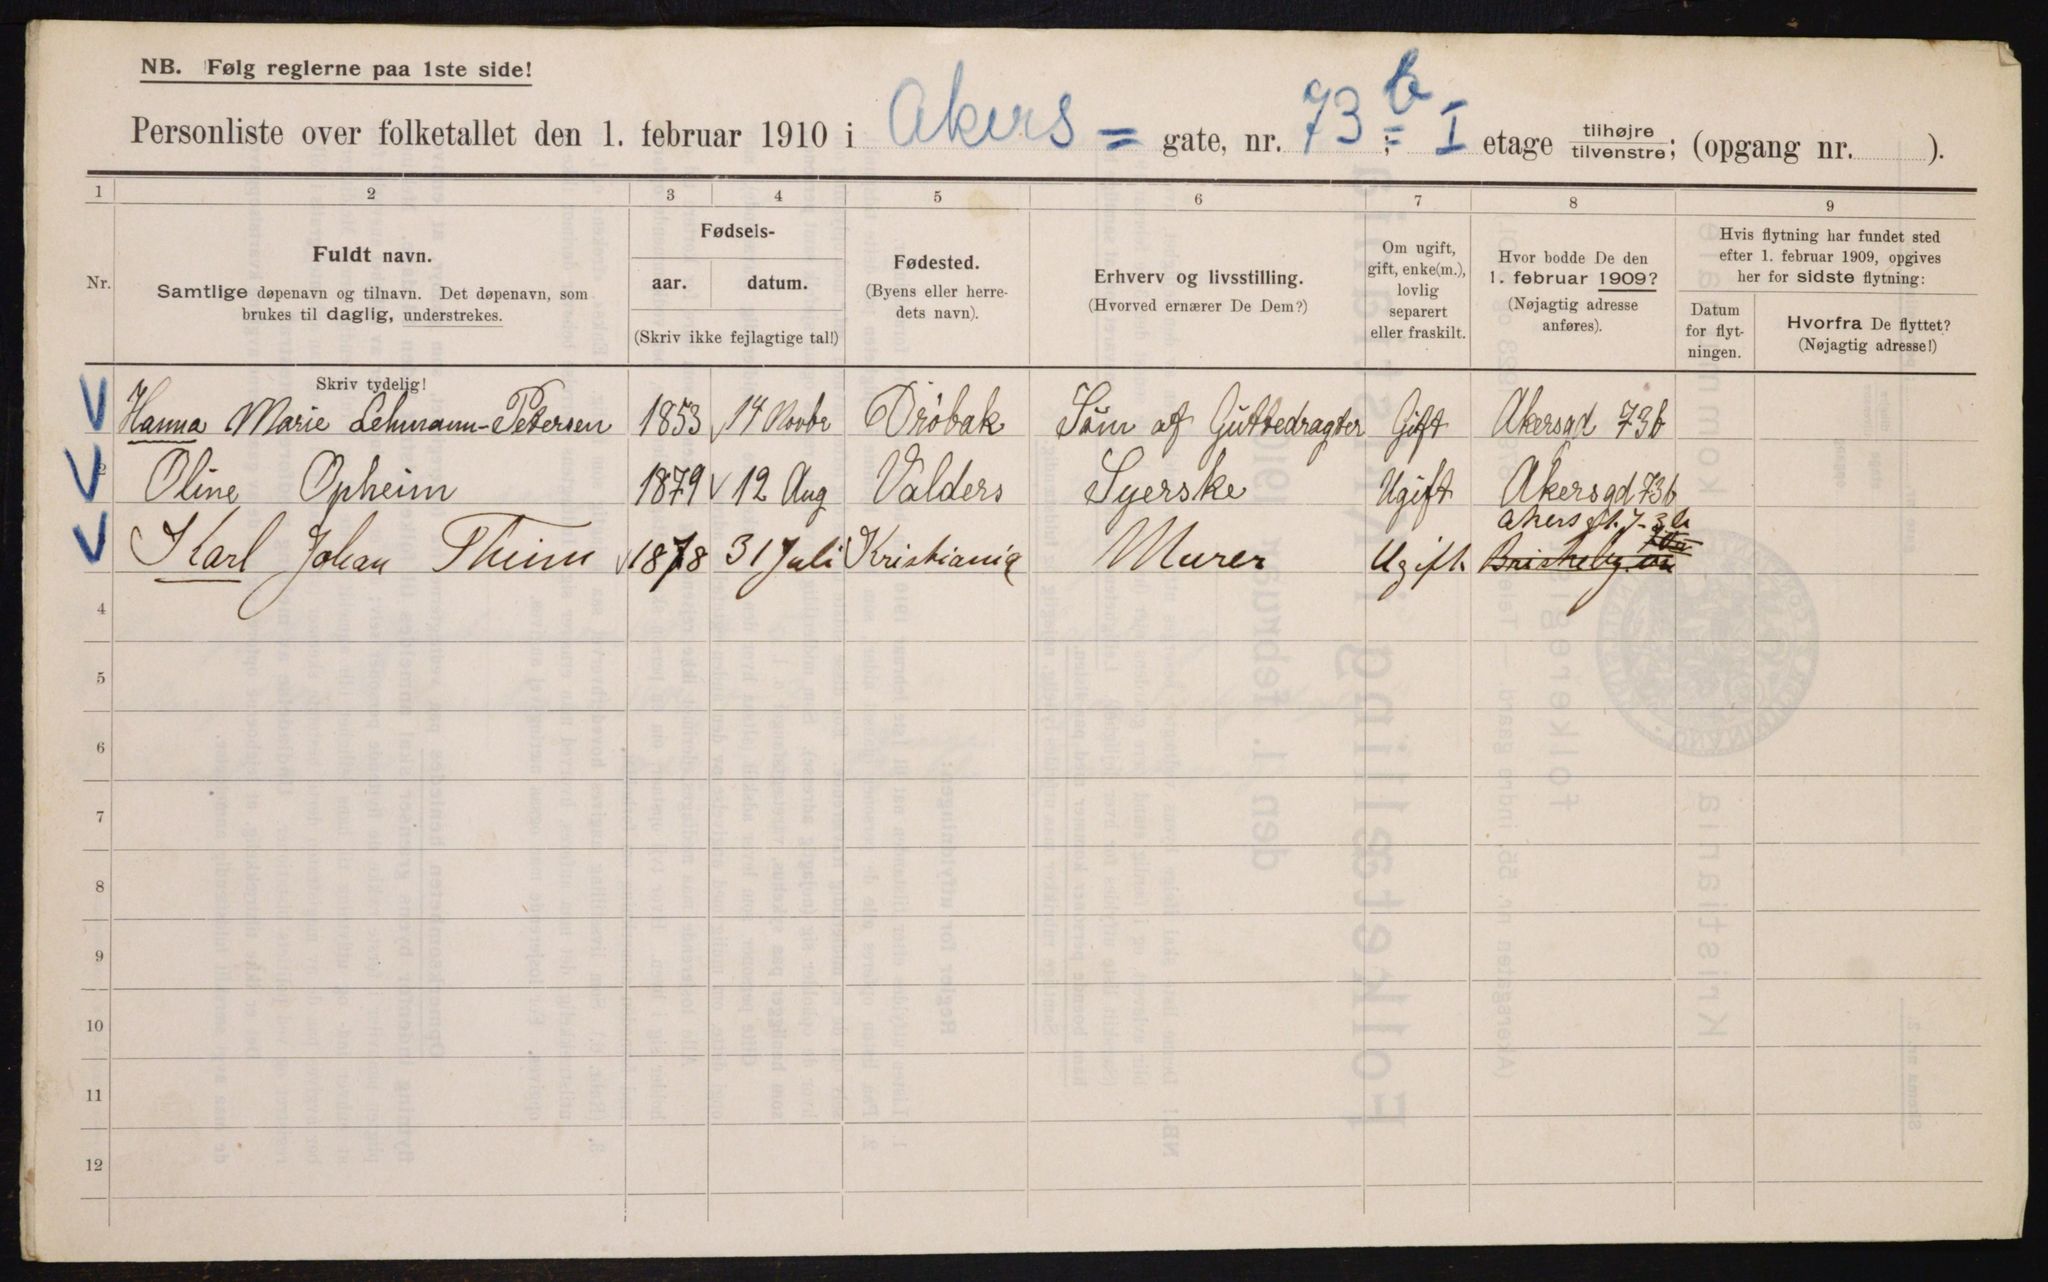 NB. Følg reglerne paa 1ste side!
Personliste over folketallet den 1. februar 1910 i Akers = gate, nr. 73 b =; I etage tilhøjre / tilvenstre; (opgang nr. ).
1 2 3 4 5 6 7 8 9
Nr.
Fuldt navn.
Samtlige døpenavn og tilnavn. Det døpenavn, som
brukes til daglig, understrekes.
Fødsels-
aar. datum.
(Skriv ikke fejlagtige tal!)
Fødested.
(Byens eller herre-
dets navn).
Erhverv og livsstilling.
(Hvorved ernærer De Dem?)
Om ugift,
gift, enke(m.),
lovlig
separert
eller fraskilt.
Hvor bodde De den
1. februar 1909?
(Nøjagtig adresse
anføres).
Hvis flytning har fundet sted
efter 1. februar 1909, opgives
her for sidste flytning:
Datum
for flyt-
ningen.
Hvorfra De flyttet?
(Nøjagtig adresse!)
Skriv tydelig!
Hanna Marie Lehmann-Petersen 1853 14 Novbr Drøbak Søm af Guttedragter Gift Akersgd 73b
2 Oline Opheim 1879 12 Aug Valders Syerske Ugift Akersgd 73b
Akersgt. 73b
Karl Johan Thim 1878 31 Juli Kristiania Murer Ugift. Briskeby
4
5
6
7
8
9
10
11
12